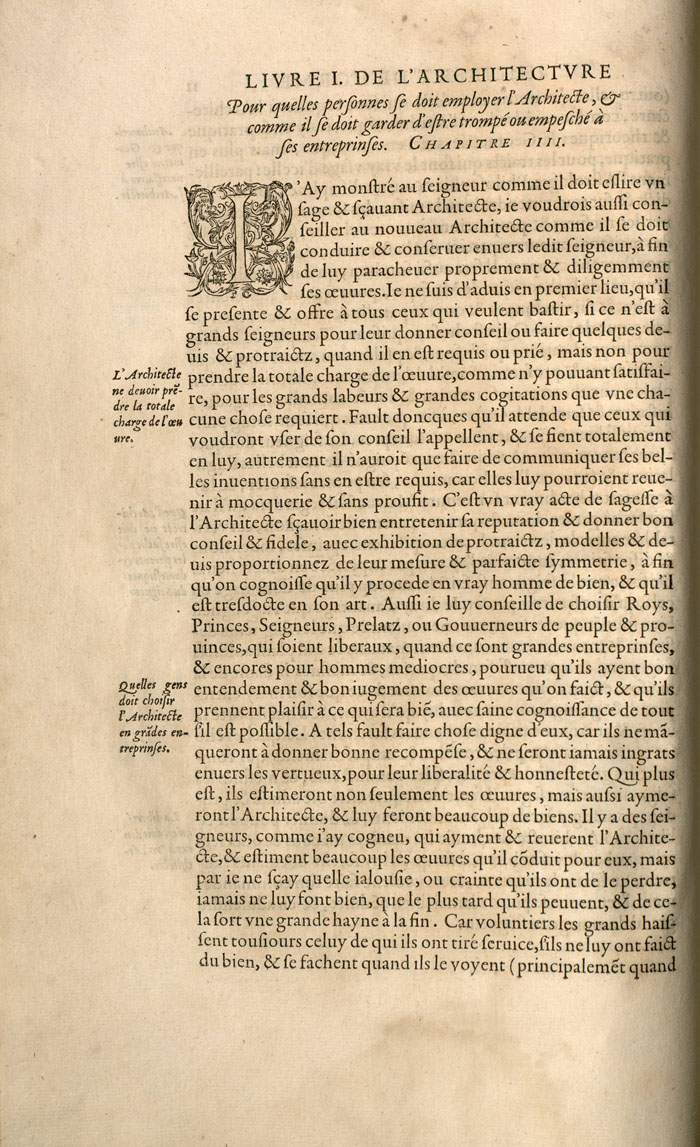 LIVRE I. DE L'ARCHITECTVRE
Pour quelles personnes se doit employer l'Architecte, &
comme il se doit garder d'estre trompé ou empesché à
ses entreprinses. CHAPITRE IIII.
I'Ay monstré au seigneur comme il doit eslire vn
sage & sçauant Architecte, ie voudrois aussi con-
seiller au nouueau Architecte comme il se doit
conduire & conseruer enuers ledit seigneur, à fin
de luy paracheuer proprement & diligemment
ses œuures. Ie ne suis d'aduis en premier lieu, qu'il
se presente & offre à tous ceux qui veulent bastir, si ce n'est à
grands seigneurs pour leur donner conseil ou faire quelques de-
uis & protraictz, quand il en est requis ou prié, mais non pour
L'Architecte
ne deuoir prē-
dre la totale
charge de l'œu
ure.
prendre la totale charge de l'œuure, comme n'y pouuant satisfai-
re, pour les grands labeurs & grandes cogitations que vne cha-
cune chose requiert. Fault doncques qu'il attende que ceux qui
voudront vser de son conseil l'appellent, & se fient totalement
en luy, autrement il n'auroit que faire de communiquer ses bel-
les inuentions sans en estre requis, car elles luy pourroient reue-
nir à mocquerie & sans proufit. C'est vn vray acte de sagesse à
l'Architecte sçauoir bien entretenir sa reputation & donner bon
conseil & fidele, auec exhibition de protraictz, modelles & de-
uis proportionnez de leur mesure & parfaicte symmetrie, à fin
qu'on cognoisse qu'il y procede en vray homme de bien, & qu'il
est tresdocte en son art. Aussi ie luy conseille de choisir Roys,
Princes, Seigneurs, Prelatz, ou Gouuerneurs de peuple & pro-
uinces, qui soient liberaux, quand ce sont grandes entreprinses,
& encores pour hommes mediocres, pourueu qu'ils ayent bon
Quelles gens
doit choisir
l'Architecte
en grādes en-
treprinses.
entendement & bon iugement des œuures qu'on faict, & qu'ils
prennent plaisir à ce qui sera biē, auec saine cognoissance de tout
s'il est possible. A tels fault faire chose digne d'eux, car ils ne mā-
queront à donner bonne recompēse, & ne seront iamais ingrats
enuers les vertueux, pour leur liberalité & honnesteté. Qui plus
est, ils estimeront non seulement les œuures, mais aussi ayme-
ront l'Architecte, & luy feront beaucoup de biens. Il y a des sei-
gneurs, comme i'ay cogneu, qui ayment & reuerent l'Archite-
cte, & estiment beaucoup les œuures qu'il cōduit pour eux, mais
par ie ne sçay quelle ialousie, ou crainte qu'ils ont de le perdre,
iamais ne luy font bien, que le plus tard qu'ils peuuent, & de ce-
la sort vne grande hayne à la fin. Car voluntiers les grands hais-
sent tousiours celuy de qui ils ont tiré seruice, s'ils ne luy ont faict
du bien, & se fachent quand ils le voyent (principalemēt quand